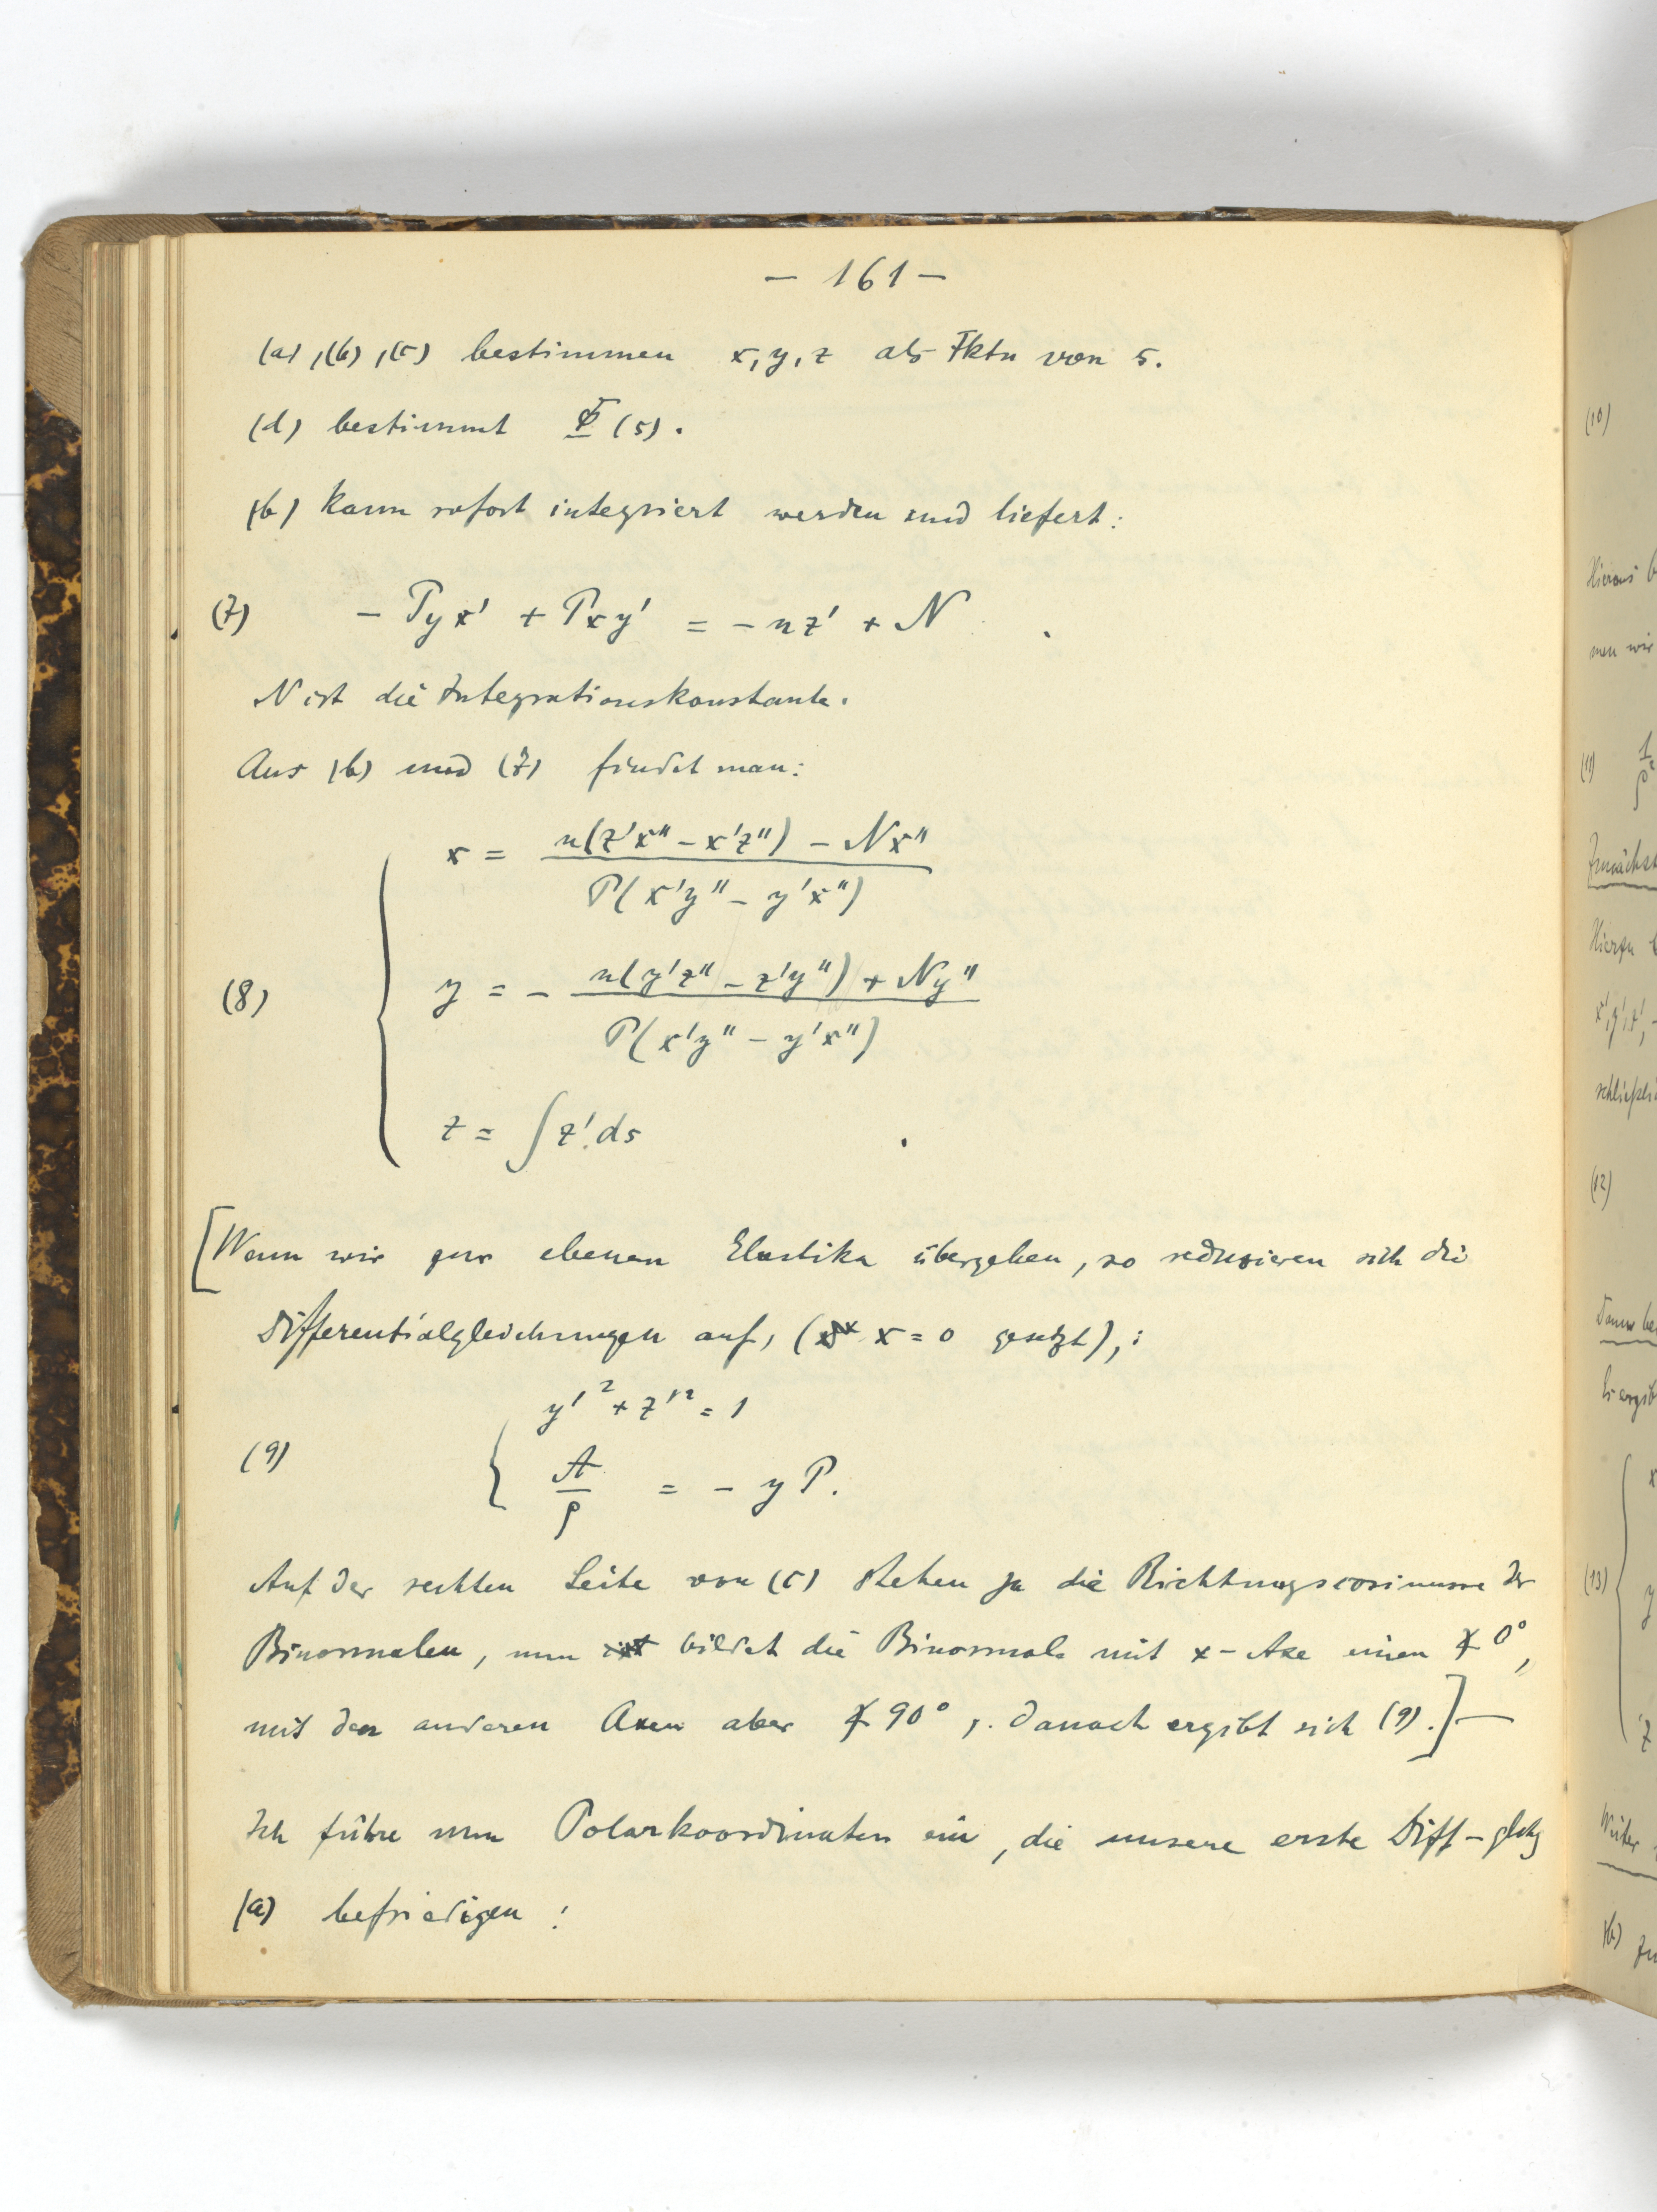 — 161 —
(a), (b), (c) bestimmen x, y, z als Fktn von s.
(d) bestimmt Φ(s).
(b) kann sofort integriert werden und liefert:
(7) − Pyx' + Pxy' = − nz' + N .
N ist die Integrationskonstante.
Aus (b) und (7) findet man:
x = n(z'x'' − x'z'') − Nx'' / P(x'y'' − y'x'')
(8) y = − n(y'z'' − z'y'') + Ny'' / P(x'y'' − y'x'')
z = ∫ z' ds .
[Wenn wir zur ebenen Elastika übergehen, so reduzieren sich die
Differentialgleichungen auf, (x = 0 gesetzt), :
y'² + z'² = 1
(9) A/ρ = − yP.
Auf der rechten Seite von (c) stehen ja die Richtungscosinusse der
Binormalen, nun bildet die Binormale mit x-Axe einen ∢ 0°,
mit den anderen Axen aber ∢ 90°,. Danach ergibt sich (9).] —
Ich führe nun Polarkoordinaten ein, die unsere erste Diff-glchg
(a) befriedigen:
(10)
Hieraus
men wir
(11)
Zunächst
Hierzu
x', y', z',
(12)
(13)
Weiter
(b)